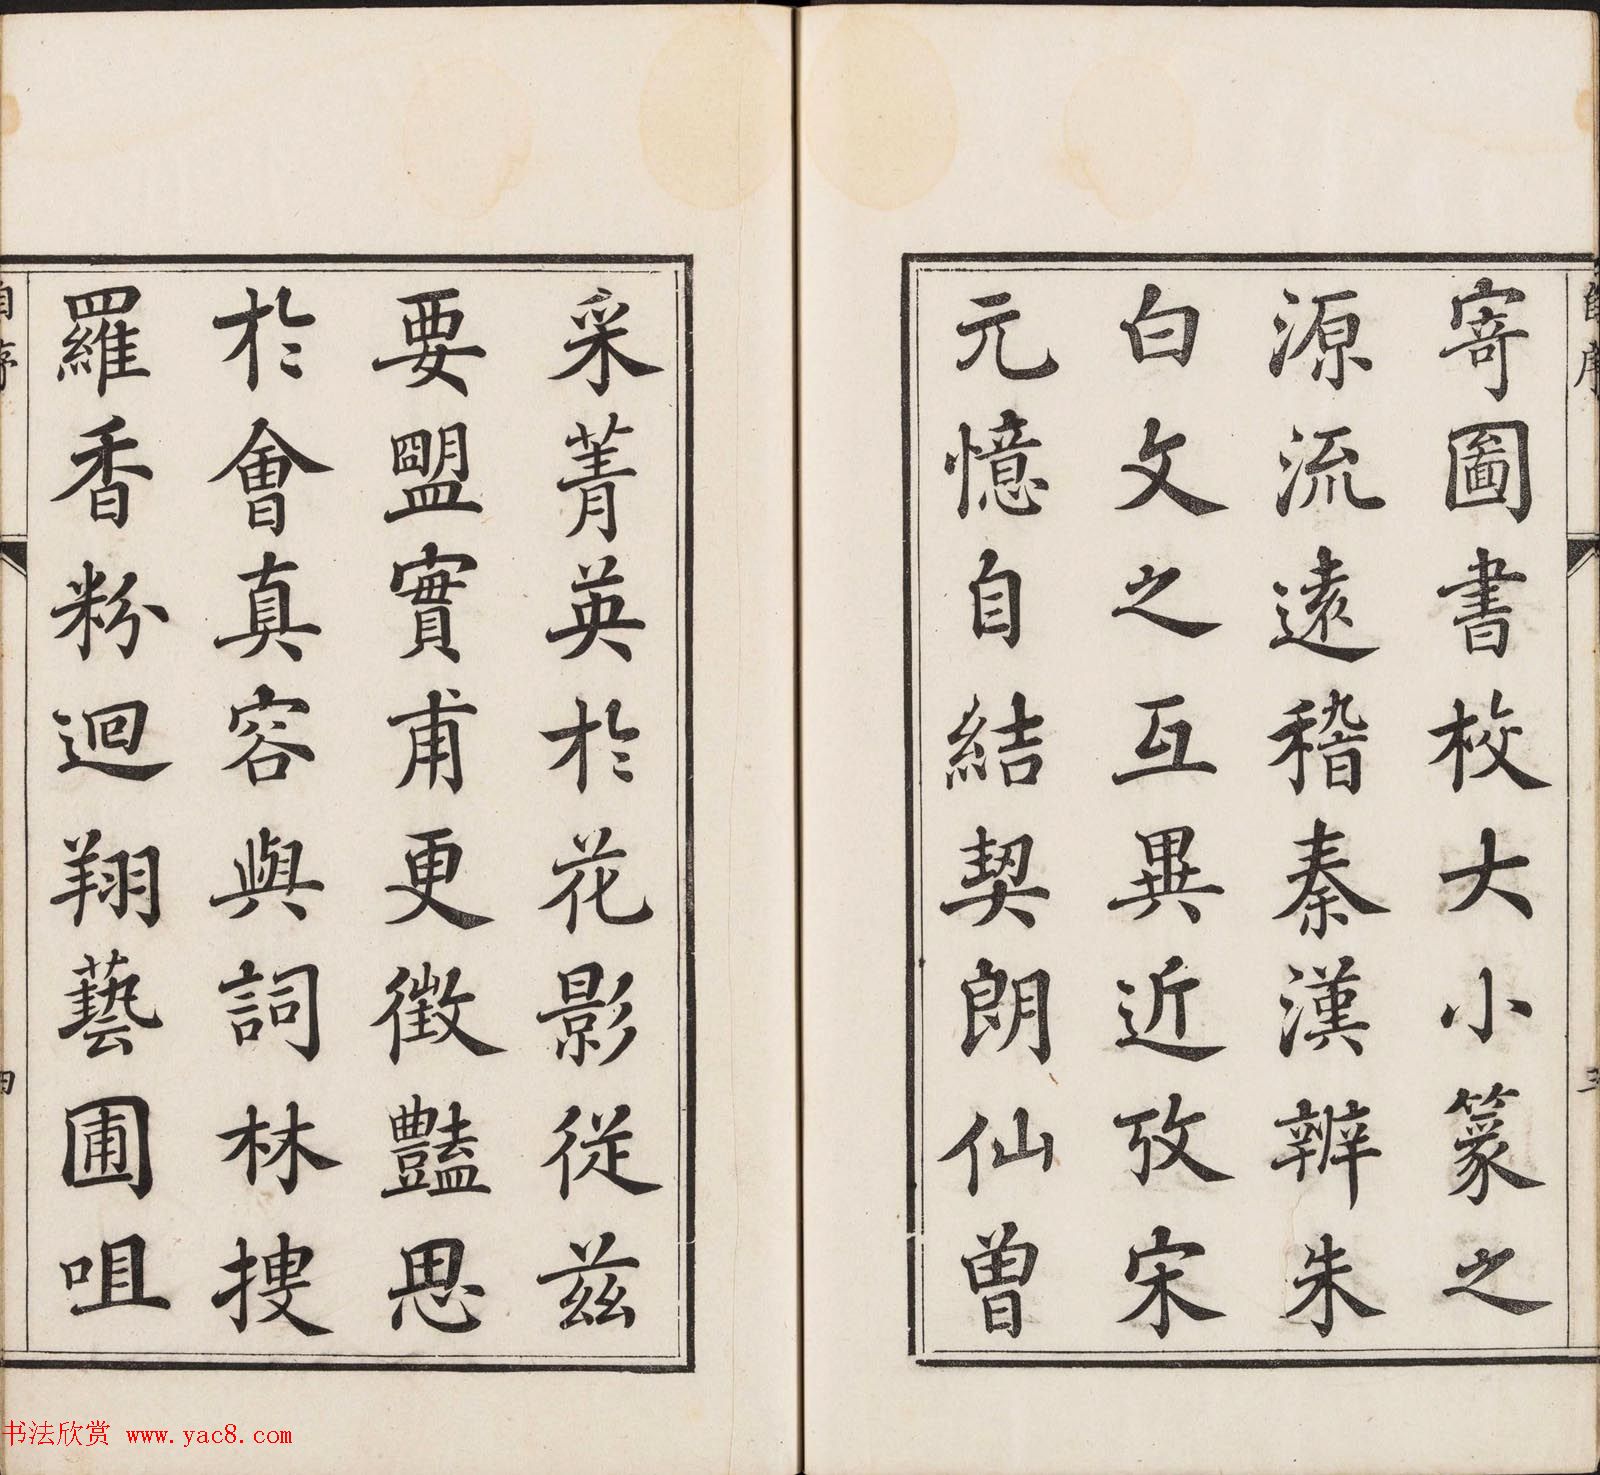 自序
寄圖書校大小篆之
源流遠稽秦漢辨朱
白文之互異近攷宋
元憶自結契朗仙曾
三
采菁英於花影從茲
要盟實甫更徵豔思
於會真容與詞林搜
羅香粉迴翔藝圃咀
自序
四
书法欣赏 www.yac8.com